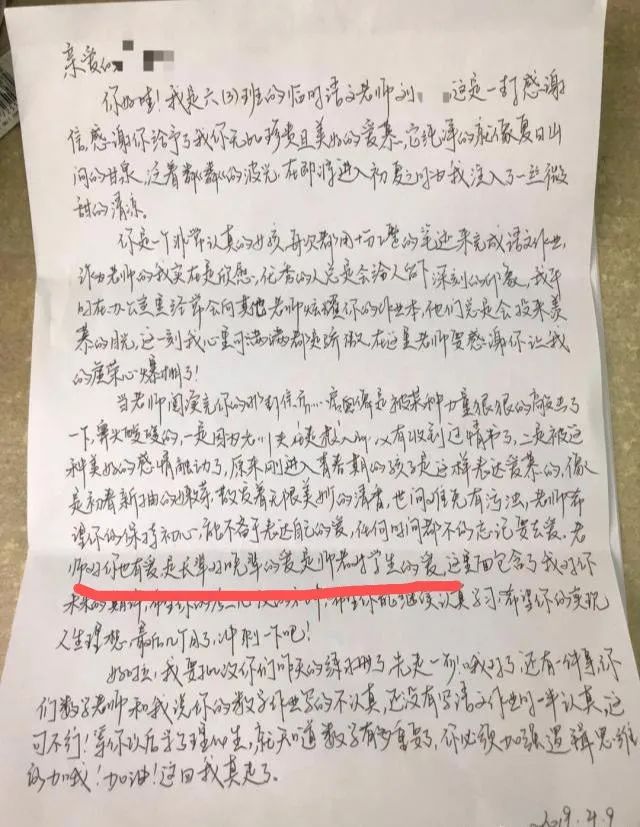 亲爱的
你好哇！我是六(3)班的临时语文老师刘 这是一封感谢
信，感谢你给予了我你无比珍贵且美好的爱慕，它纯净的就像夏日山
间的甘泉，泛着粼粼的波光，在即将进入初夏之间为我注入了一丝微
甜的清凉。
你是一个非常认真的女孩，每次都用工整的笔迹来完成语文作业，
作为老师的我实在是欣慰，优秀的人总是会给人留下深刻的印象，我平
时在办公室里经常会向其他老师炫耀你的作业本，他们总是会投来羡
慕的目光，这一刻我心里可满满都是骄傲，在这里老师要感谢你让我
的虚荣心爆棚了！
当老师阅读完你的那封信后…后脑像是被某种力量狠狠的敲击了
一下，鼻头酸酸的，一是因为 又有收到过情书了，二是被这
种美好的感情触动了，原来刚进入青春期的孩子是这样表达爱慕的，像
是初春新抽的嫩芽，散发着无限美妙的清香，世间难免有污浊，老师希
望你能保持初心，能不吝于表达自己的爱，任何时间都不能忘记要去爱。老
师对你也有爱，是长辈对晚辈的爱是师者对学生的爱，这里面包含了我对你
未来的期许，希望你能继续认真学习，希望你能实现
人生理想，最后几个月了，冲刺一下吧！
好啦，我要批改你们昨天的练习册了，先走一步！哦对了，还有一件事，你
们数学老师和我说你的数学作业写的不认真，还没有写语文作业时一半认真，这
可不行！等你以后学了理化生，就知道数学有多重要了，你必须加强逻辑思维
的加哦！加油！这回我真走了。
2019.4.9